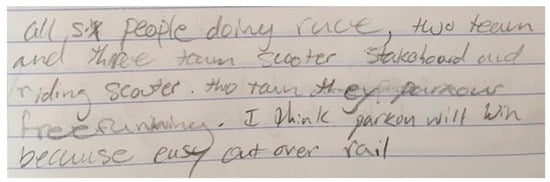 all six people doing race, two team
and three team scooter stakeboard and
riding scooter. two team they parkour
freerunning. I think parkou will win
because easy out over rail